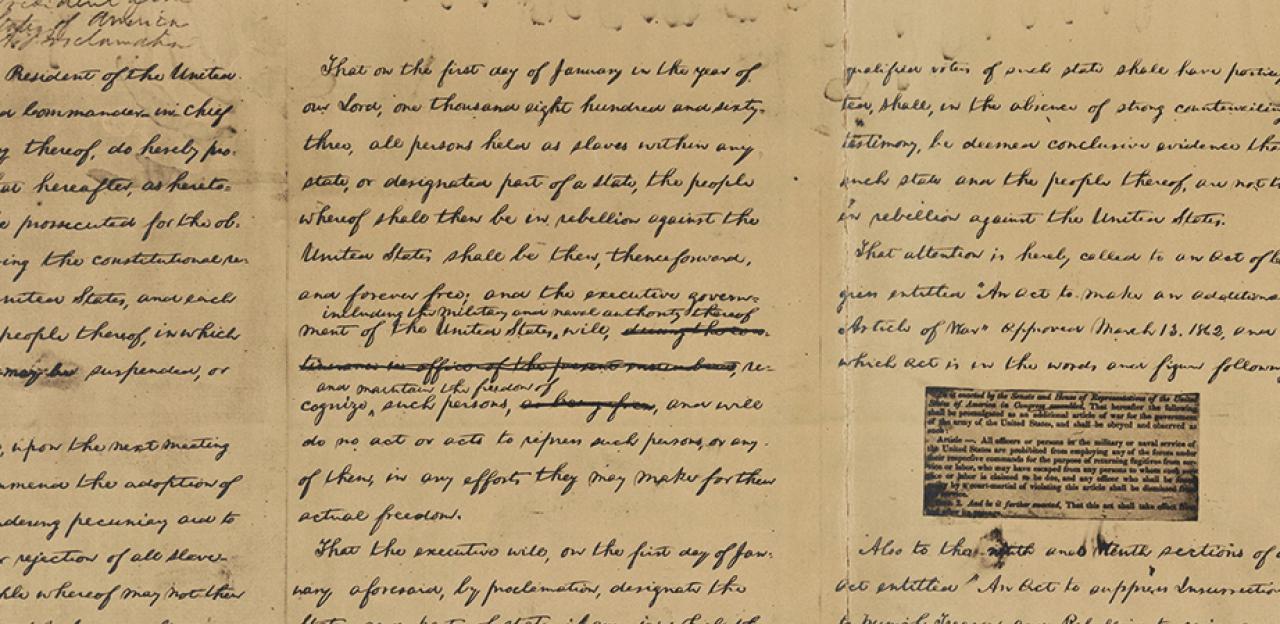 President
of America
A Proclamation
President of the United
Commander-in-Chief
thereof, do hereby pro-
hereafter, as hereto-
prosecuted for the ob-
the constitutional re-
United States, and each
people thereof, in which
may be suspended, or
upon the next meeting
the adoption of
pecuniary aid to
rejection of all slave-
whereof may not then
That on the first day of January in the year of
our Lord, one thousand eight hundred and sixty-
three, all persons held as slaves within any
state, or designated part of a state, the people
whereof shall then be in rebellion against the
United States shall be then, thenceforward,
and forever free; and the executive govern-
including the military and naval authority thereof
ment of the United States, will, during the con-
tinuance in office of the present incumbents, re-
and maintain the freedom of
cognize, such persons, as being free, and will
do no act or acts to repress such persons, or any
of them, in any efforts they may make for their
actual freedom.
That the executive will, on the first day of Jan-
uary aforesaid, by proclamation, designate the
qualified voters of such state shall have
ted, shall, in the absence of strong
testimony, be deemed conclusive evidence
such state and the people thereof, are not
in rebellion against the United States.
That attention is hereby called to an act of
gress entitled "An act to make an additional
Article of War" Approved March 13, 1862, and
which act is in the words and figure following
enacted by the Senate and House of Representatives of the United
States of America in Congress assembled, That hereafter the following
shall be promulgated as an additional article of war for the government
of the army of the United States, and shall be obeyed and observed as
Article —. All officers or persons in the military or naval service of
the United States are prohibited from employing any of the forces under
their respective commands for the purpose of returning fugitives from
or labor, who may have escaped from any persons to whom such
or labor is claimed to be due, and any officer who shall be found
by a court-martial of violating this article shall be dismissed
service.
2. And be it further enacted, That this act shall take effect
after its passage.
Also to the ninth and tenth sections of
act entitled "An Act to suppress Insurrection